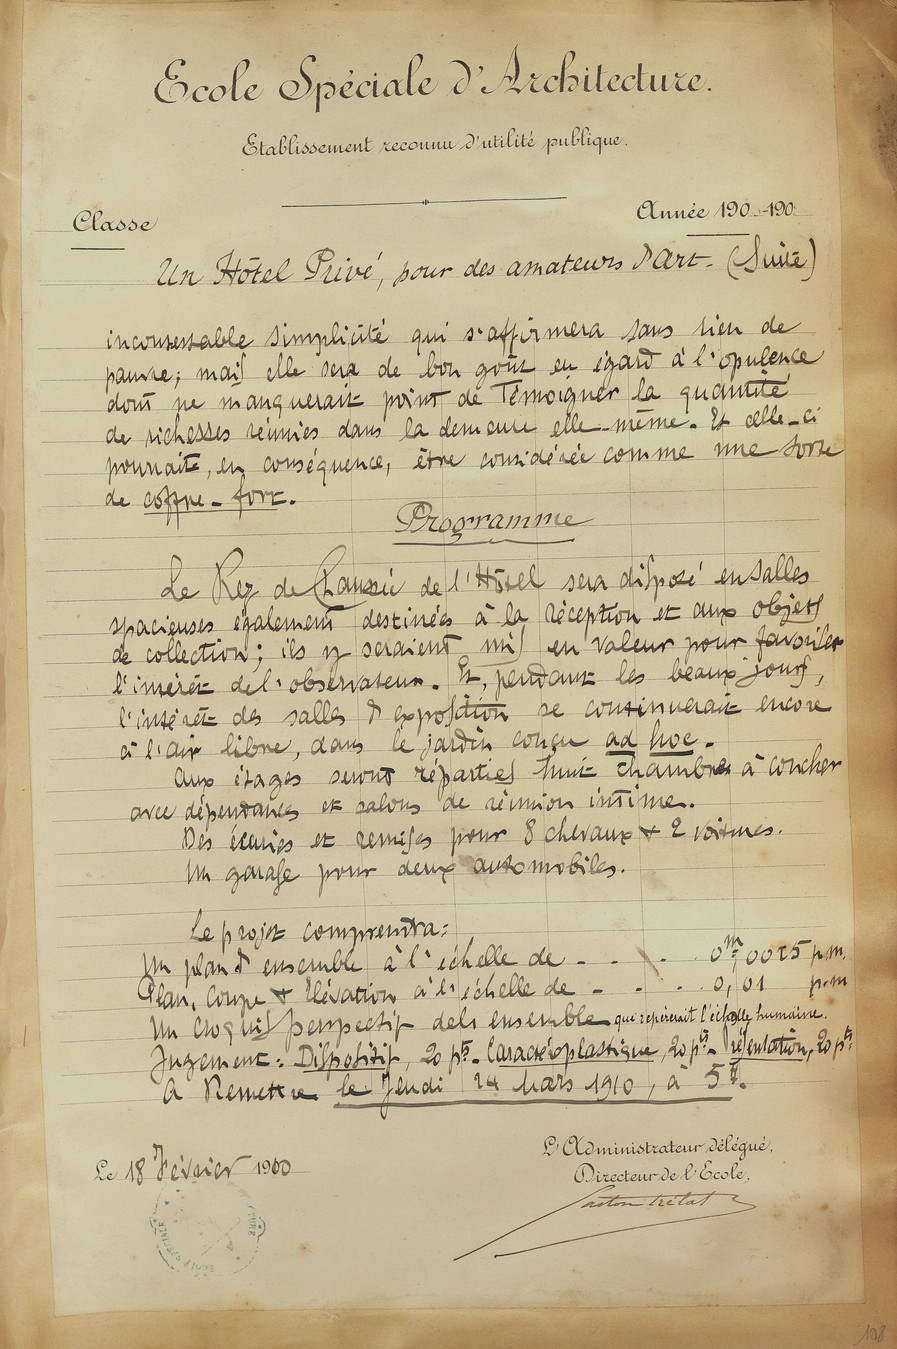 Ecole Spéciale d'Architecture.
Etablissement reconnu d'utilité publique.
Classe
Année 190 -190
Un Hôtel Privé, pour des amateurs d'Art. (Suite)
incontestable simplicité qui s'affirmera sans rien de
pauvre; mais elle sera de bon goût en égard à l'opulence
dont ne manquerait point de Témoigner la quantité
de richesses réunies dans la demeure elle-même. Et celle-ci
pourrait, en conséquence, être considérée comme une sorte
de coffre-fort.
Programme
Le Rez de Chaussée de l'Hôtel sera disposé en salles
spacieuses également destinées à la réception et aux objets
de collection; ils y seraient mis en valeur pour favoriser
l'intérêt de l'observateur. Et, pendant les beaux jours,
l'intérêt des salles d'exposition se continuerait encore
à l'air libre, dans le jardin conçu ad hoc.
Aux étages seront réparties huit chambres à coucher
avec dépendances et salons de réunion intime.
Des écuries et remises pour 8 chevaux & 2 voitures.
Un garage pour deux automobiles.
Le projet comprendra:
Un plan d'ensemble à l'échelle de - - - . 0m,0025 p.m.
Plan, Coupe & Elévation à l'échelle de - - - . 0,01 p.m
Un croquis perspectif de l'ensemble que repérerait l'échelle humaine.
Jugement: Dispositif, 20 pts- Caractéoplastique, 20 pts- Présentation, 20 pts
A Remettre le Jeudi 24 Mars 1910, à 5h.
L'Administrateur délégué,
Directeur de l'Ecole,
Le 18 Février 1900
Gaston Trélat
108